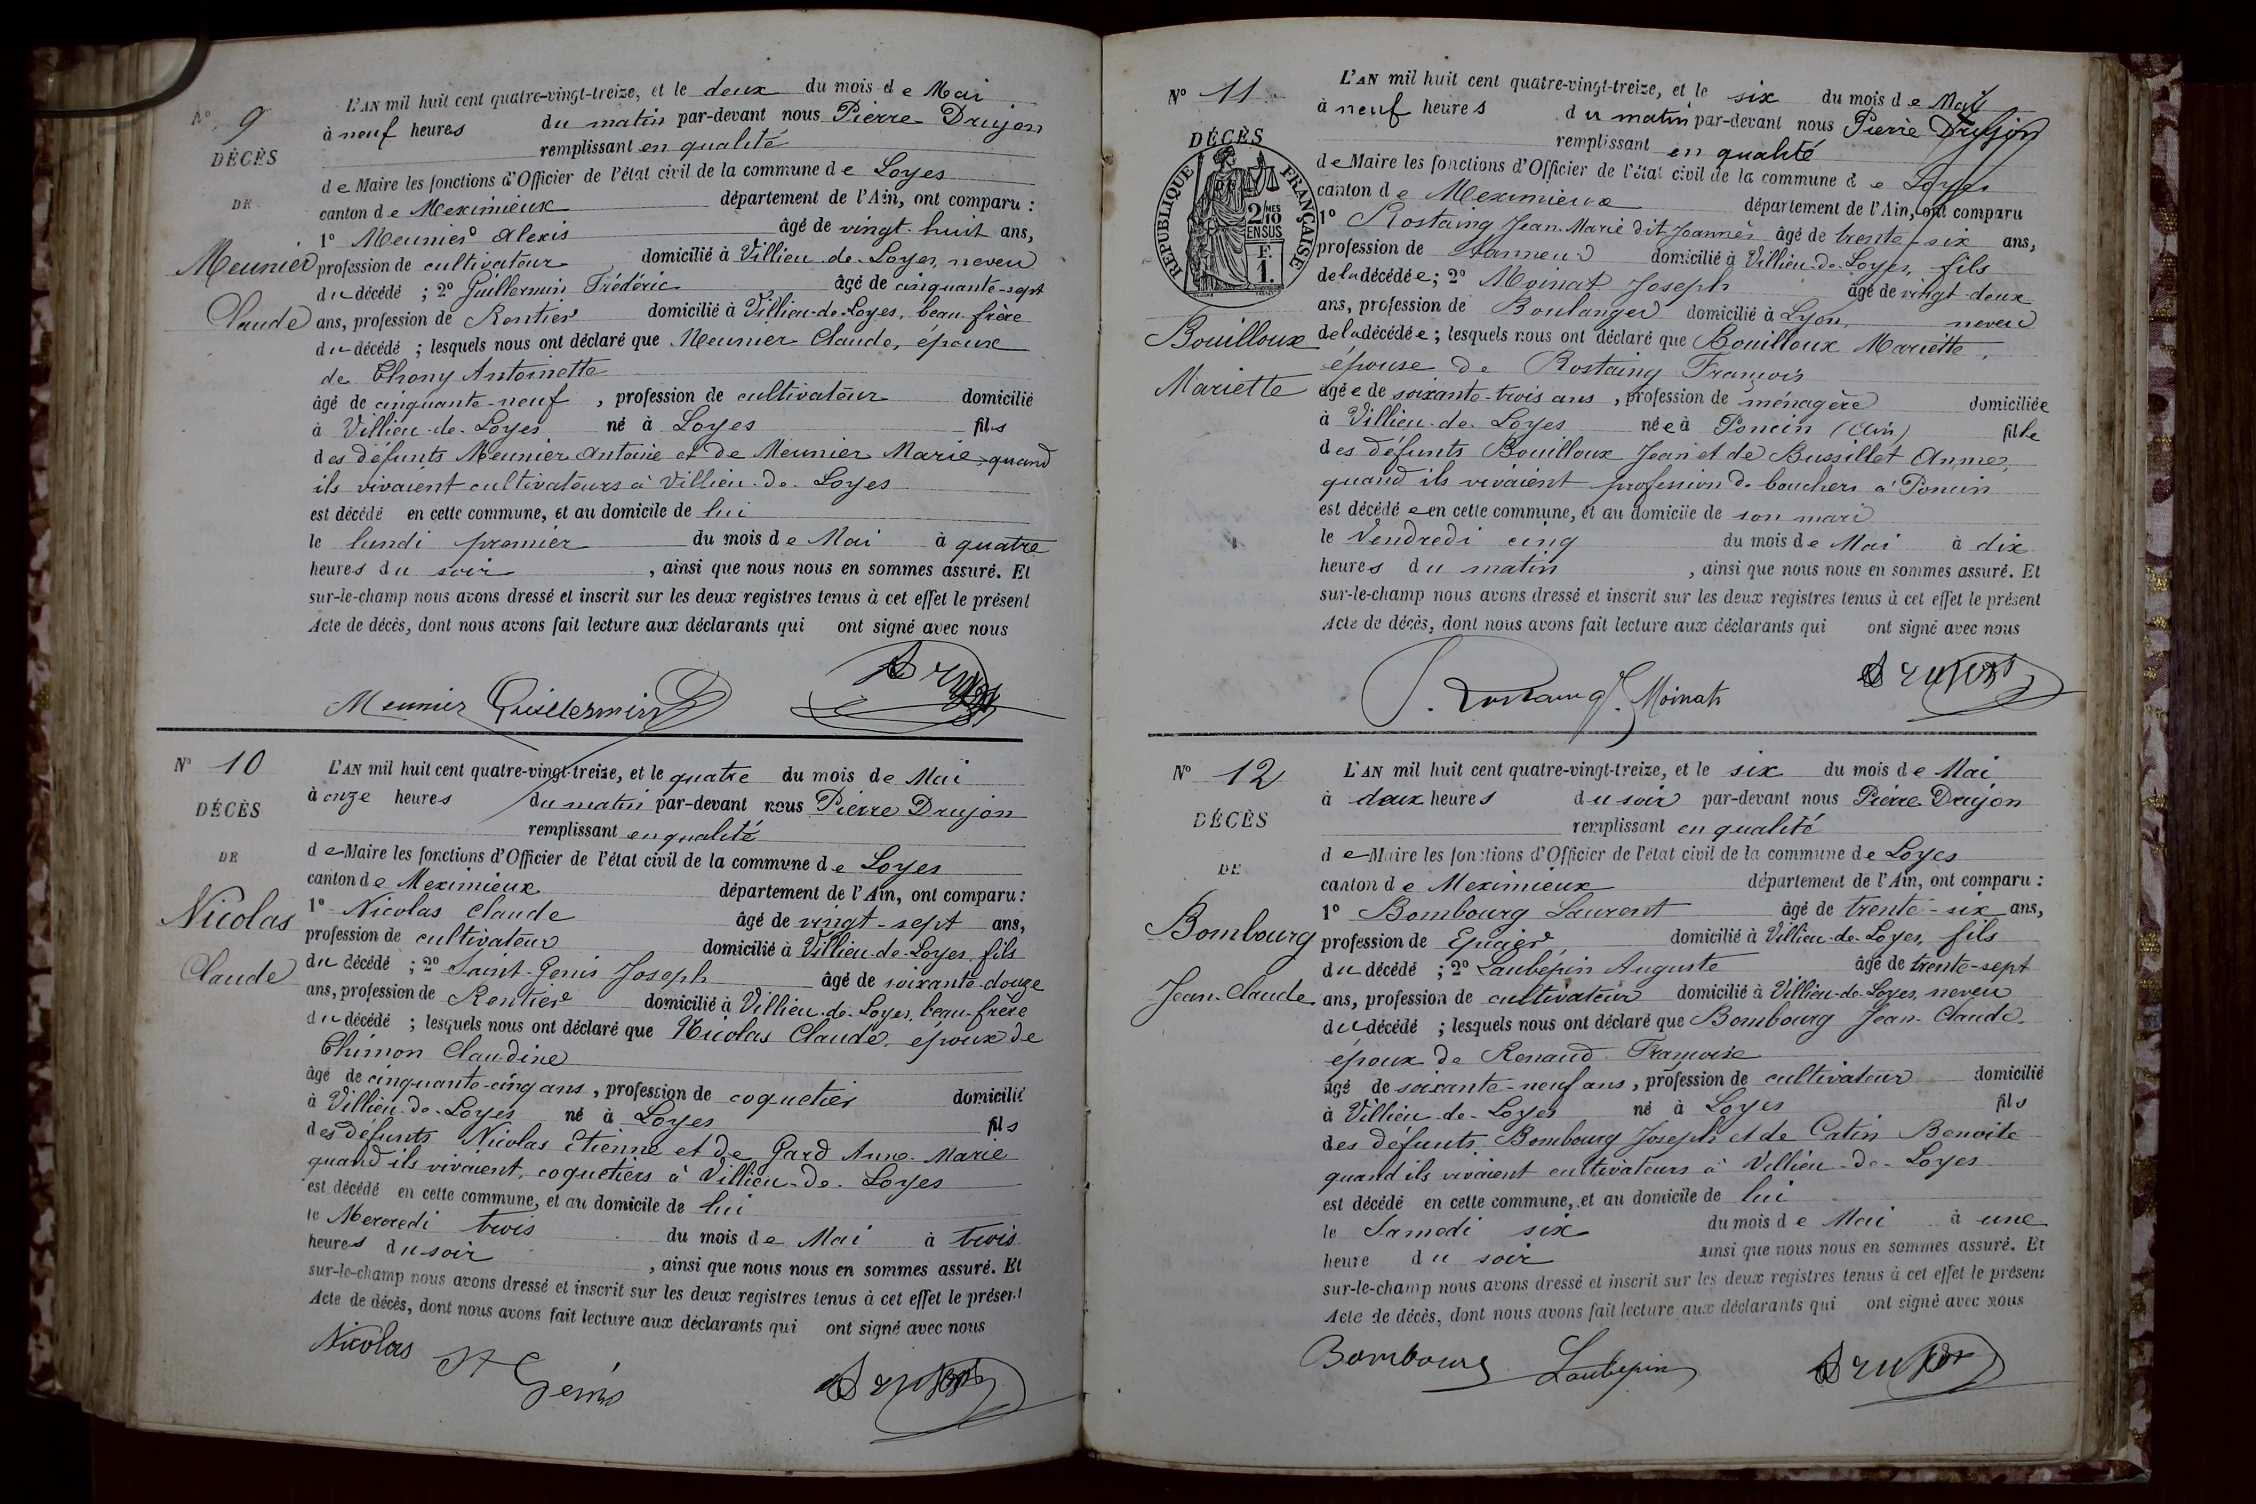 N° 9
DÉCÈS
DE
Meunier
Claude
L'AN mil huit cent quatre-vingt-treize, et le deux du mois de Mai
à neuf heures du matin par-devant nous Pierre Drujon
remplissant en qualité
de Maire les fonctions d'Officier de l'état civil de la commune de Loyes
canton de Meximieux département de l'Ain, ont comparu :
1° Meunier Alexis âgé de vingt-huit ans,
profession de cultivateur domicilié à Villieu-de-Loyes, neveu
du décédé ; 2° Guillermin Frédéric âgé de cinquante-sept
ans, profession de Rentier domicilié à Villieu-de-Loyes, beau-frère
du décédé ; lesquels nous ont déclaré que Meunier Claude, époux
de Thony Antoinette
âgé de cinquante-neuf , profession de cultivateur domicilié
à Villieu-de-Loyes né à Loyes fils
des défunts Meunier Antoine et de Meunier Marie, quand
ils vivaient cultivateurs à Villieu-de-Loyes
est décédé en cette commune, et au domicile de lui
le lundi premier du mois de Mai à quatre
heures du soir , ainsi que nous nous en sommes assuré. Et
sur-le-champ nous avons dressé et inscrit sur les deux registres tenus à cet effet le présent
Acte de décès, dont nous avons fait lecture aux déclarants qui ont signé avec nous
Meunier Guillermin Drujon
N° 10
DÉCÈS
DE
Nicolas
Claude
L'AN mil huit cent quatre-vingt-treize, et le quatre du mois de Mai
à onze heures du matin par-devant nous Pierre Drujon
remplissant en qualité
de Maire les fonctions d'Officier de l'état civil de la commune de Loyes
canton de Meximieux département de l'Ain, ont comparu :
1° Nicolas Claude âgé de vingt-sept ans,
profession de cultivateur domicilié à Villieu-de-Loyes, fils
du décédé ; 2° Saint-Genis Joseph âgé de soixante-douze
ans, profession de Rentier domicilié à Villieu-de-Loyes, beau-frère
du décédé ; lesquels nous ont déclaré que Nicolas Claude, époux de
Thimon Claudine
âgé de cinquante-cinq ans, profession de coquetier domicilié
à Villieu-de-Loyes né à Loyes fils
des défunts Nicolas Etienne et de Gard Anne-Marie
quand ils vivaient, coquetiers à Villieu-de-Loyes
est décédé en cette commune, et au domicile de lui
le Mercredi trois du mois de Mai à trois
heures du soir , ainsi que nous nous en sommes assuré. Et
sur-le-champ nous avons dressé et inscrit sur les deux registres tenus à cet effet le présent
Acte de décès, dont nous avons fait lecture aux déclarants qui ont signé avec nous
Nicolas St Genis Drujon
N° 11
DÉCÈS
RÉPUBLIQUE FRANÇAISE
2/10MES EN SUS
F. 1.
Bouilloux
Mariette
L'AN mil huit cent quatre-vingt-treize, et le six du mois de Mai
à neuf heures du matin par-devant nous Pierre Drujon
remplissant en qualité
de Maire les fonctions d'Officier de l'état civil de la commune de Loyes
canton de Meximieux département de l'Ain, ont comparu
1° Rostaing Jean-Marie dit Joannès âgé de trente-six ans,
profession de Tanneur domicilié à Villieu-de-Loyes, fils
de la décédée ; 2° Moinat Joseph âgé de vingt-deux
ans, profession de Boulanger domicilié à Lyon, neveu
de la décédée ; lesquels nous ont déclaré que Bouilloux Mariette,
épouse de Rostaing François
âgée de soixante-trois ans, profession de ménagère domiciliée
à Villieu-de-Loyes née à Poncin (Ain) fille
des défunts Bouilloux Jean et de Bussillet Anne,
quand ils vivaient profession de bouchers à Poncin
est décédée en cette commune, et au domicile de son mari
le Vendredi cinq du mois de Mai à dix
heures du matin , ainsi que nous nous en sommes assuré. Et
sur-le-champ nous avons dressé et inscrit sur les deux registres tenus à cet effet le présent
Acte de décès, dont nous avons fait lecture aux déclarants qui ont signé avec nous
J. Rostaing J. Moinat Drujon
N° 12
DÉCÈS
DE
Bombourg
Jean-Claude
L'AN mil huit cent quatre-vingt-treize, et le six du mois de Mai
à deux heures du soir par-devant nous Pierre Drujon
remplissant en qualité
de Maire les fonctions d'Officier de l'état civil de la commune de Loyes
canton de Meximieux département de l'Ain, ont comparu :
1° Bombourg Laurent âgé de trente-six ans,
profession de Epicier, domicilié à Villieu-de-Loyes, fils
du décédé ; 2° Laubépin Auguste âgé de trente-sept
ans, profession de cultivateur domicilié à Villieu-de-Loyes, neveu
du décédé ; lesquels nous ont déclaré que Bombourg Jean-Claude,
époux de Renaud Françoise
âgé de soixante-neuf ans, profession de cultivateur domicilié
à Villieu-de-Loyes né à Loyes fils
des défunts Bombourg Joseph et de Catin Benoite
quand ils vivaient cultivateurs à Villieu-de-Loyes
est décédé en cette commune, et au domicile de lui
le Samedi six du mois de Mai à une
heure du soir ainsi que nous nous en sommes assuré. Et
sur-le-champ nous avons dressé et inscrit sur les deux registres tenus à cet effet le présent
Acte de décès, dont nous avons fait lecture aux déclarants qui ont signé avec nous
Bombourg Laubépin Drujon